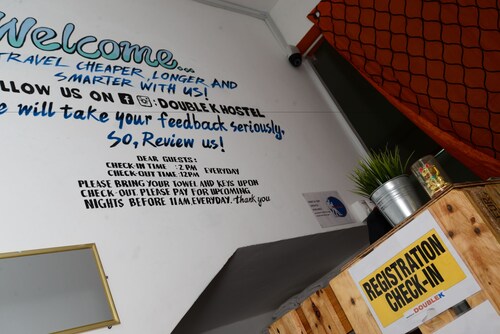 Welcome...
TRAVEL CHEAPER, LONGER AND
SMARTER WITH US!
LLOW US ON : DOUBLE K HOSTEL
e will take your feedback seriously.
So, Review us!
DEAR GUESTS:
CHECK-IN TIME : 2 PM
CHECK-OUT TIME: 12PM EVERYDAY
PLEASE BRING YOUR TOWEL AND KEYS UPON
CHECK-OUT. PLEASE PAY FOR UPCOMING
NIGHTS BEFORE 11AM. EVERYDAY. thank you
REGISTRATION
CHECK-IN
DOUBLEK